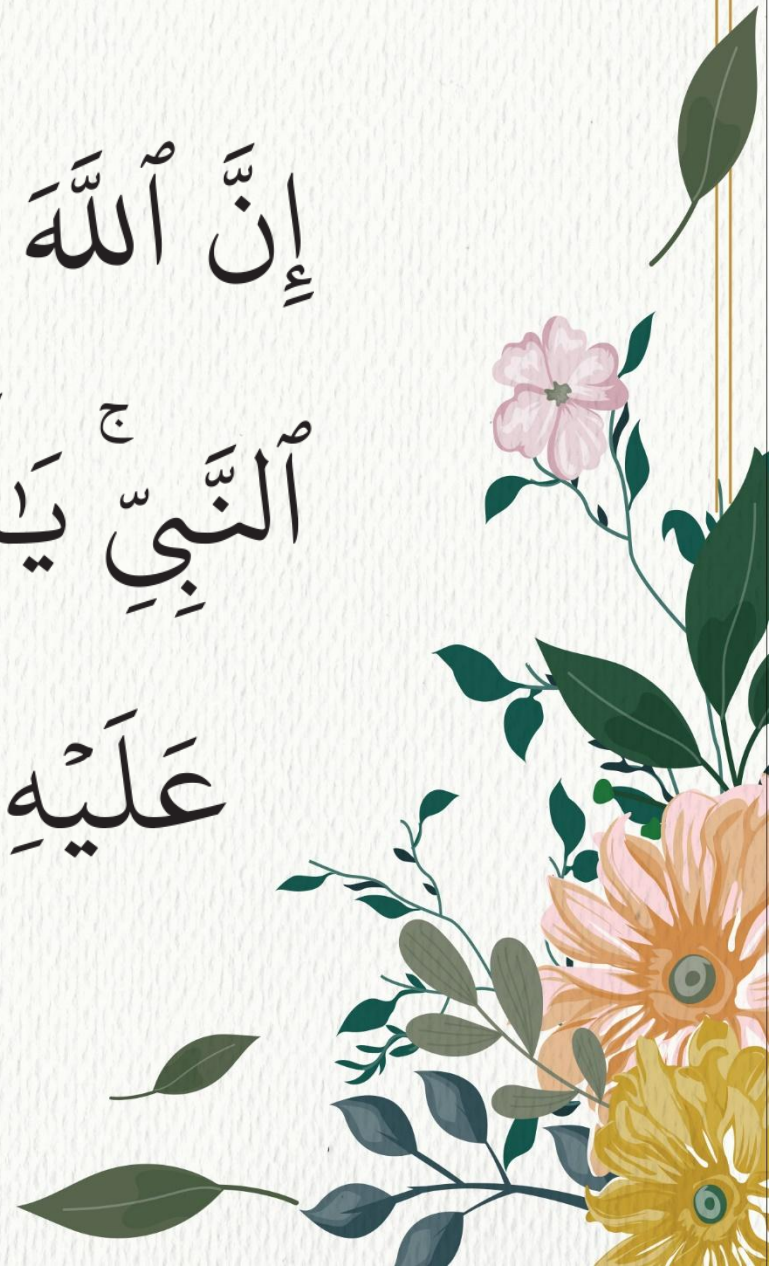 إِنَّ ٱللَّهَ
ٱلنَّبِيِّۚ يَٰ
عَلَيْهِ